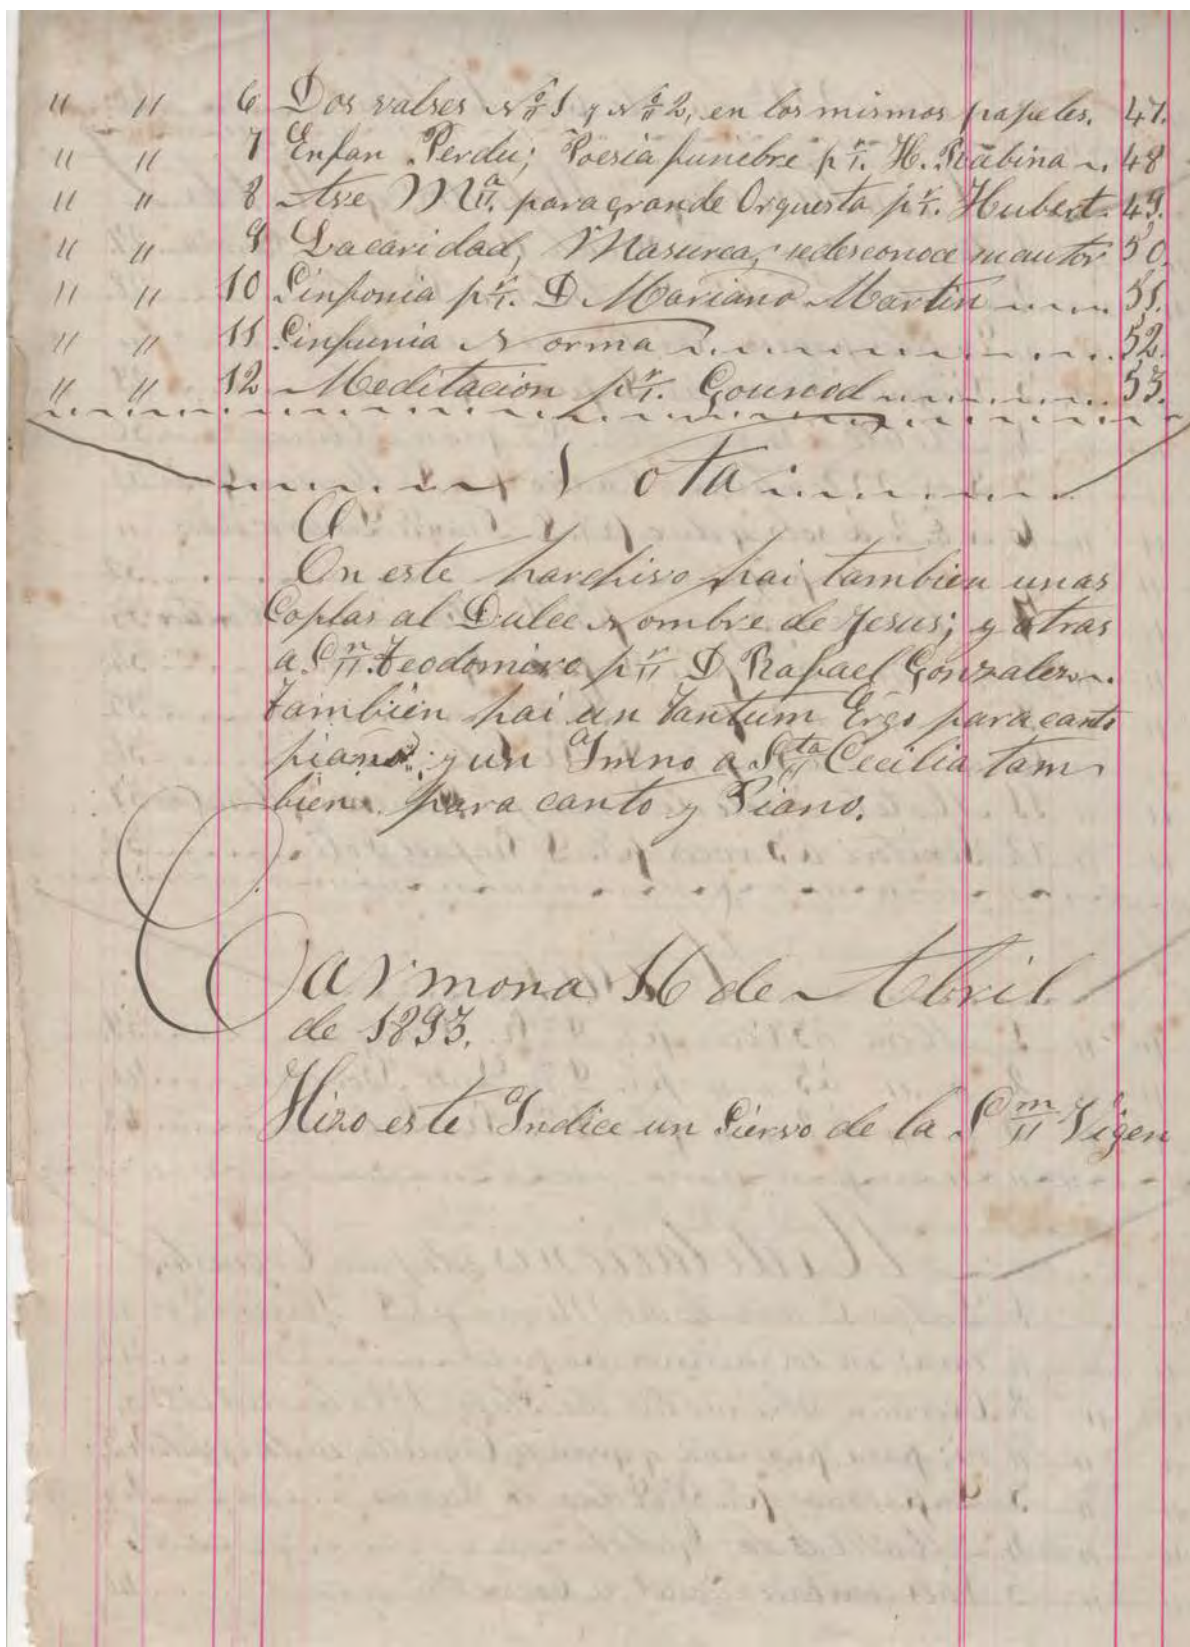 " " 6 Dos valses Nº 1 y Nº 2, en los mismos papeles. 47.
" " 7 Enfan Perdu; Poesia funebre pr. H. Rabina 48
" " 8 Ave Mª. para grande Orquesta pr. Hubert. 49.
" " 9 La caridad, Masurca, se desconoce su autor 50.
" " 10 Sinfonia pr. D Mariano Martin 51.
" " 11 Sinfunia Norma 52.
" " 12 Meditacion pr. Gounod 53.
Nota
En este harchivo hai tambien unas
Coplas al Dulce Nombre de Jesus; y otras
a Sn Teodomiro pr D Rafael Gonzalez.
tambien hai un Tantum Ergo para canto
piano; y un Imno a Sta Cecilia tam
bien para canto y Piano.
Carmona 16 de Abril
de 1893.
Hizo este Indice un Siervo de la Sma Vigen